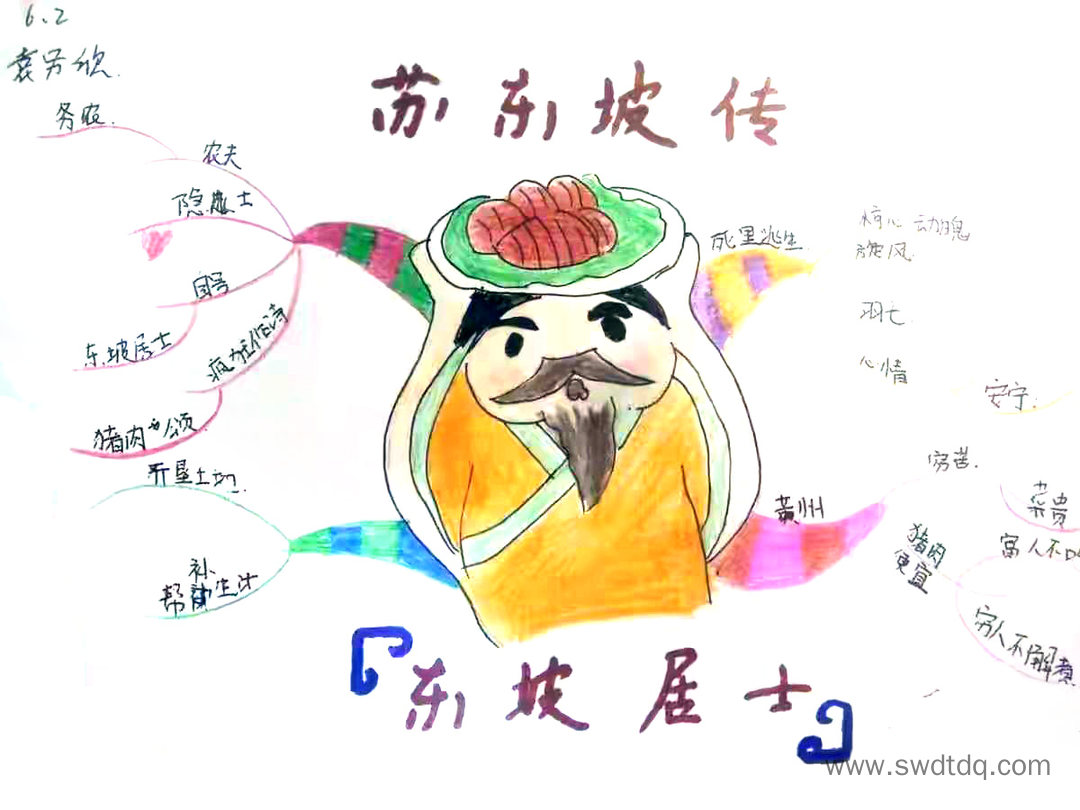 6.2
苏东坡传
务农.
农夫
隐居士
东坡居士
疯狂作诗
猪肉颂
开垦土地
补
帮助生计
死里逃生
惊心动魄
旋风
心情
安宁.
穷苦.
菜贵
黄州
猪肉
便宜
富人不
穷人不解煮
『东坡居士』
www.swdtdq.com